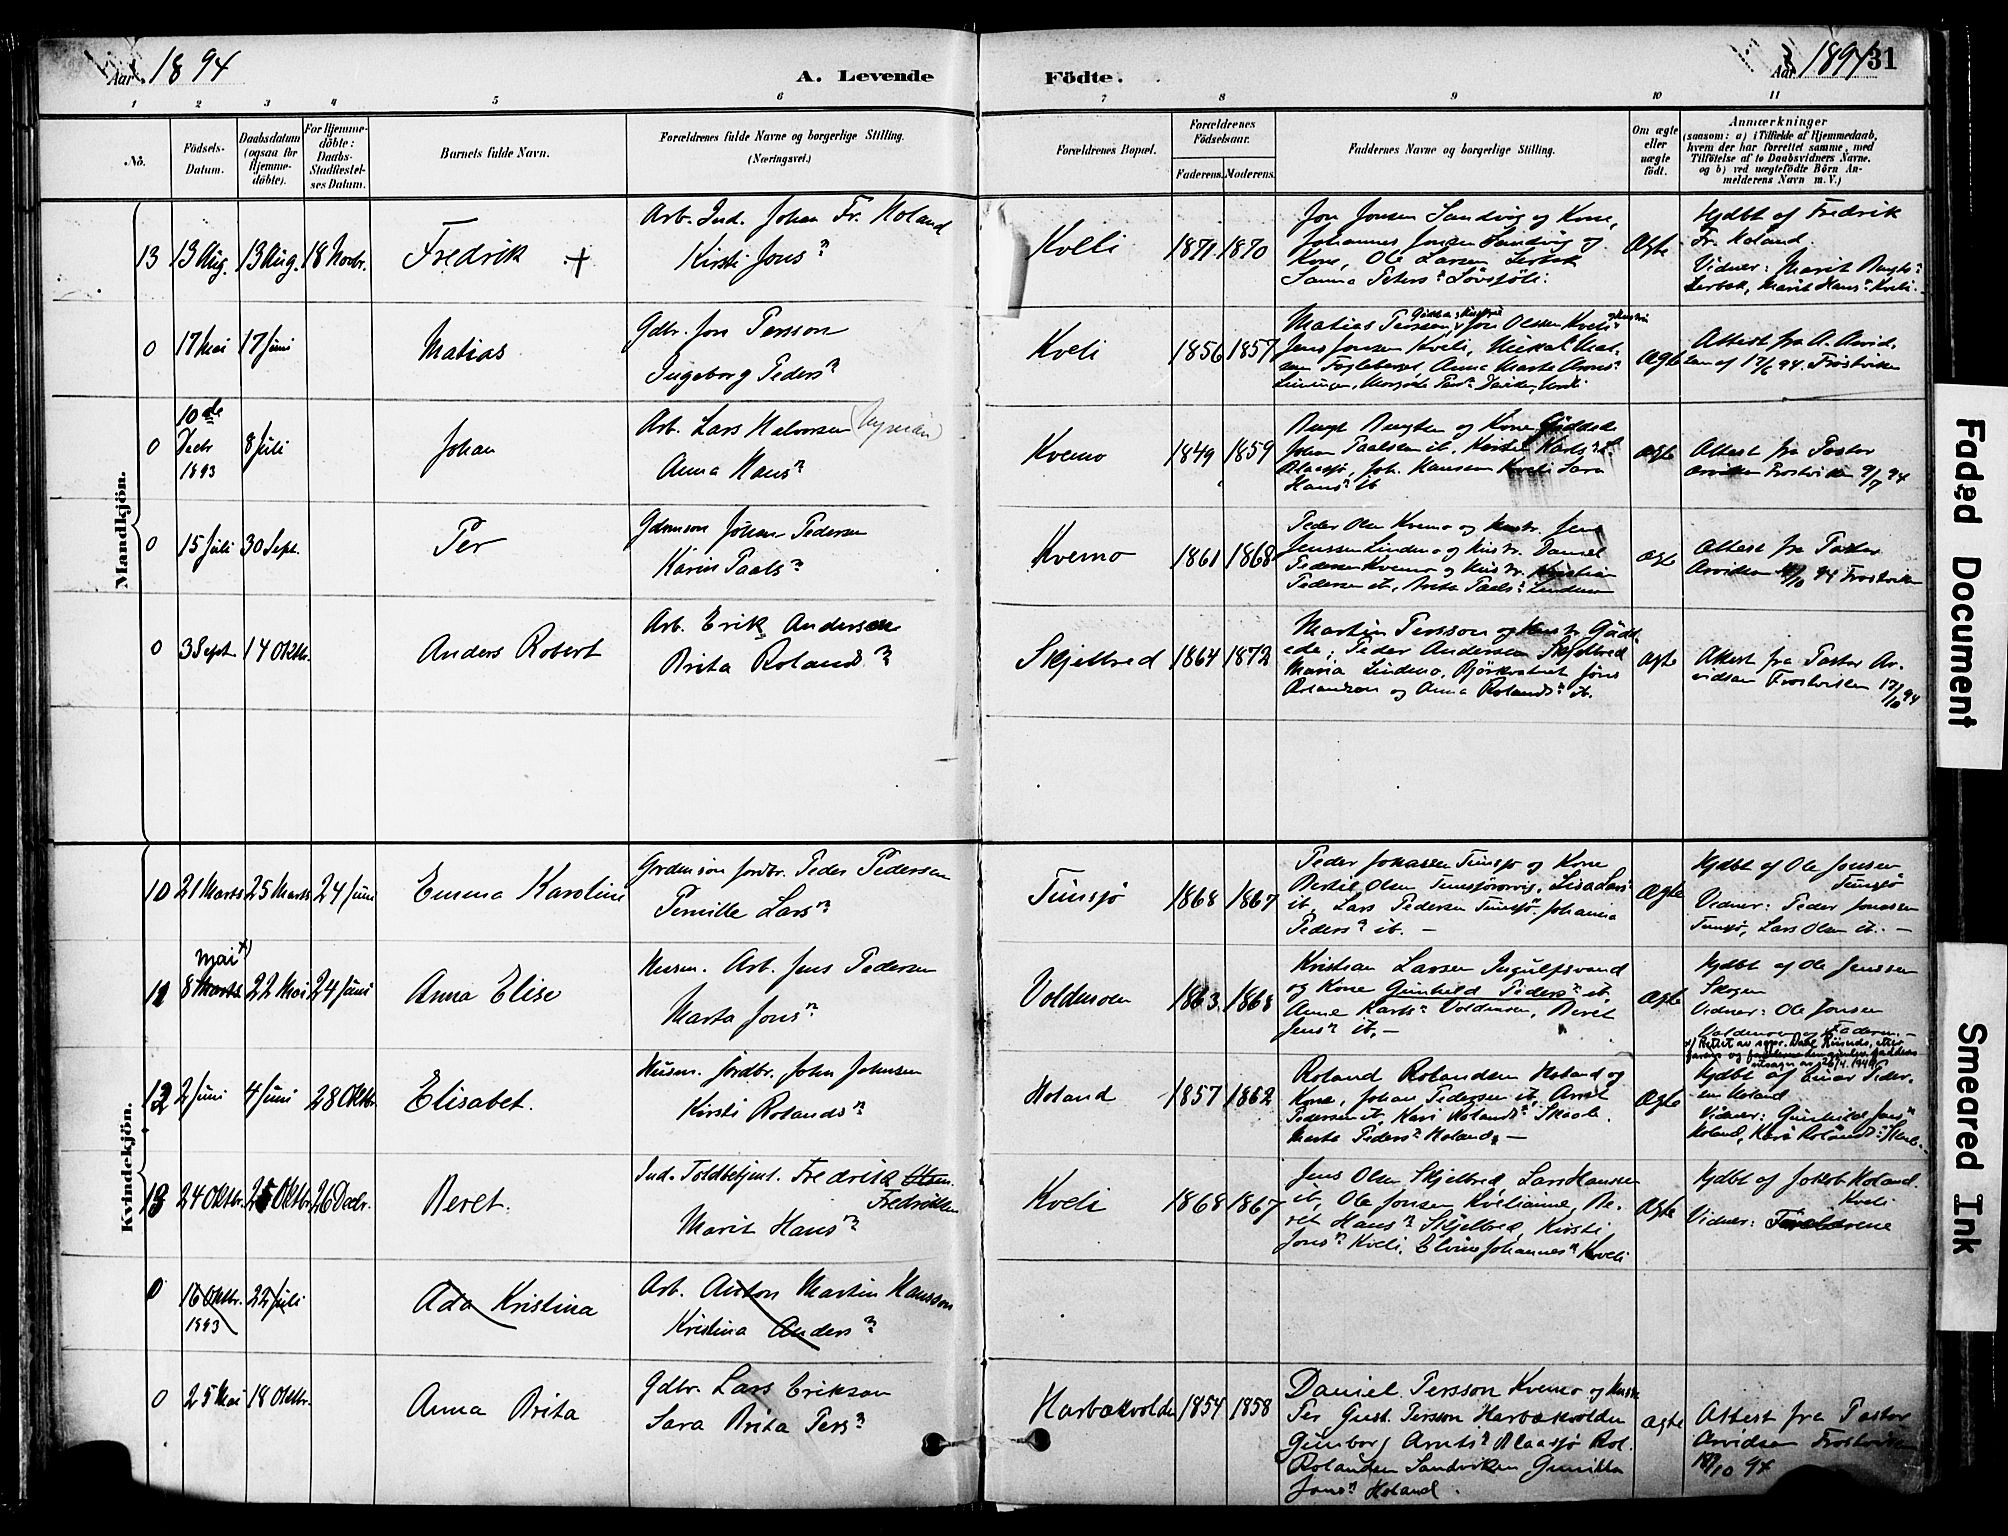 Aar 1894
A. Levende
Födte.
Aar 1894
31
1 2 3 4 5 6 7 8 9 10 11
No.
Födsels-
Datum.
Daabsdatum
(ogsaa for
Hjemme-
döbte).
For Hjemme-
döbte:
Daabs-
Stadfæstel-
ses Datum.
Barnets fulde Navn.
Forældrenes fulde Navne og borgerlige Stilling.
(Næringsvei.)
Forældrenes Bopæl.
Forældrenes
Födselsaar.
Faderens. Moderens.
Faddernes Navne og borgerlige Stilling.
Om ægte
eller
uægte
födt.
Anmærkninger
(saasom: a) i Tilfælde af Hjemmedaab,
hvem der har forrettet samme, med
Tilföielse af to Daabsvidners Navne.
og b) ved uægtefödte Börn An-
melderens Navn m. V.)
Mandkjön.
13 13 Aug. 13 Aug. 18 Novbr. Fredrik +
Arb. Ind. Johan Fr. Holand
Kirsti Jonsn
Kveli 1871 1870
Jon Jonsen Sandvig og Kone,
Johannes Jonsen Sandvig og
Kone, Ole Larsen Lerbak
Sanna Petersn Lövsjöli.
Ægte
Hjdbt af Fredrik
Fr. Holand.
Vidner: Marit Bengtsn
Lerbak, Marit Hansn Kveli.
0 17 Mai 17 Juni Matias
Gdbr. Jon Persson
Ingeborg Pedersn
Kveli 1856 1857
Matias Persson, Jon Olsen Kveli
Jens Jonsen Kveli, Mikal
Fagleberget, Anna Marta
Ægte
Attest fra A. Arvid-
sen af 17/6 94. Frostviken
0 10de Decbr 1893 8 Juli Johan
Arb. Lars Halvorsen (Nyman)
Anna Hansn
Kvemo 1849 1859
Bengt Bengtsen og Kone Gäddede
Johan Paalsen it., Kirstin Karlsn
Blaasjö, Joh. Hansen Kveli Sara
Hansn it
Ægte
Attest fra Pastor
Arvidsen Frostviken 9/7 94
0 15 Juli 30 Sept. Per
Gdmnson Johan Pedersen
Karin Paalsn
Kvemo 1861 1868
Peder Olsen Kvemo og Hustr. Jens
Jenssen Lindmo og Hustr. Daniel
Pedersen Kvemo og Hustr. Kristian
Pedersen it., Brita Paalsn Lindmo
Ægte
Attest fra Pastor
Arvidsen 4/10 94 Frostviken
0 3 Sept. 14 Oktbr. Anders Robert
Arb. Erik Andersen
Brita Rolandsn
Skjelbred 1864 1872
Martin Persson og Hustr. Gädd-
ede, Peder Andersen Skjelbred
Maria Lindmo, Björkvatnet Jöns
Rolandsen og Anna Rolandsn it.
Ægte
Attest fra Pastor Ar-
vidsen Frostviken 17/10 94
Kvindekjön.
10 21 Marts 25 Marts 24 Juni Emma Karoline
Gardmnson Jordbr. Peder Pedersen
Pernille Larsn
Tunsjø 1868 1867
Peder Jonassen Tunsjø og Kone
Bertil Olsen Tunsjørørvig, Lisa Larsn
it, Lars Pedersen Tunsjø. Johanna
Pedersn it. –
Ægte
Hjdbt af Ole Jonsen
Tunsjø
Vidner: Peder Jonassen
Tunsjø, Lars Olsen it. –
11 8 Marts Mai x) 22 Mai 24 Juni Anna Elise
Husm. Arb. Jens Pedersen
Marta Jonsn
Voldmoen 1863. 1868
Kristian Larsen Ingulfsvand
og Kone Gunhild Pedersn it,
Anne Karlsn Voldmoen, Beret
Jensn it. –
Ægte
Hjdbt af Ole Jenssen
Skogen
Vidner: Ole Jonsen
Voldmoen og Faderen. –
12 2 Juni 4 Juni 28 Oktbr. Elisabet.
Husm. Jordbr. John Johnsen
Kirsti Rolandsn
Holand 1857 1862
Roland Rolandsen Holand og
Kone, Johan Pedersen it, Arnt
Pedersen it, Kari Rolandsn Skaale
Marta Pedersn Holand. –
Ægte
Hjdbt af Einar Peder-
sen Holand
Vidner: Gunhild Jonsn
Holand, Kari Rolandsn Skaale.
13 24 Oktbr. 25 Oktbr 26 Decbr. Beret.
Ind. Toldbetjent. Fredrik Olsen.
Fredriksen
Marit Hansn
Kveli 1868 1867
Jens Olsen Skjelbred, Lars Hansen
it, Ole Jonsen Kveliamne, Be-
ret Hansn Skjelbred, Kirsti
Jonsn Kveli, Elvine Johannesn Kveli
Ægte
Hjdbt af Jakob Holand
Kveli
Vidner: Forældrene
0 16 Oktbr. 1893 22 Juli Ada Kristina
Arb. Anton Martin Hansson
Kristina Andersn
0 25 Mai 18 Oktbr. Anna Brita
Gdbr. Lars Erikson
Sara Brita Persn
Harbakvolden 1854 1858
Daniel Persson Kvemo og Hustr.
Per Gust. Persson Harbakvolden
Gunborg Arntsn Blaasjø Rol.
Rolandsen Sandviken Gunilla
Jonsn Holand.
Ægte
Attest fra Pastor
Arvidsen Frostviken
18/10 94
Faded Document
Smeared Ink